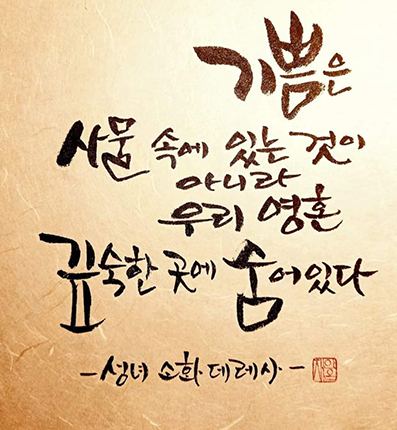 기쁨은
사물 속에 있는 것이
아니라
우리 영혼
깊숙한 곳에 숨어있다
- 성녀 소화데레사 -